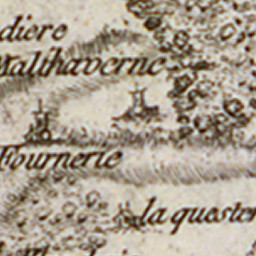 diere
Malthaverne
Fournerie
la quester